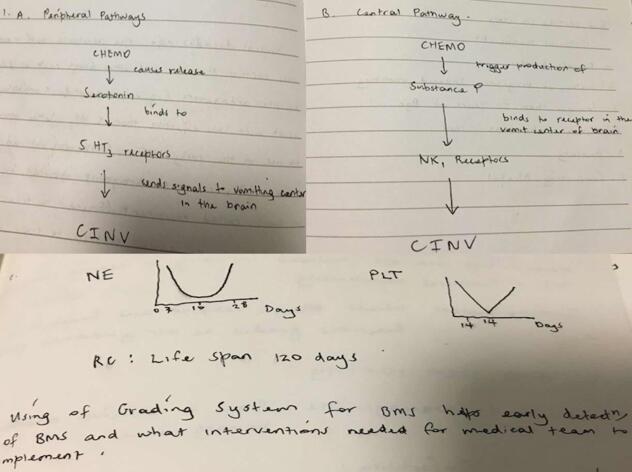 1. A. Peripheral Pathways
CHEMO
causes release
Serotonin
binds to
5 HT3 receptors
sends signals to vomiting center
in the brain
CINV
B. Central Pathway.
CHEMO
trigger production of
Substance P
binds to receptor in the
vomit center of brain
NK1 Receptors
CINV
NE
0 7 28 Days
PLT
14 Days
RC : Life span 120 days
Using of Grading System for BMS helps early
of BMS and what interventions needed for medical team to
mplement.